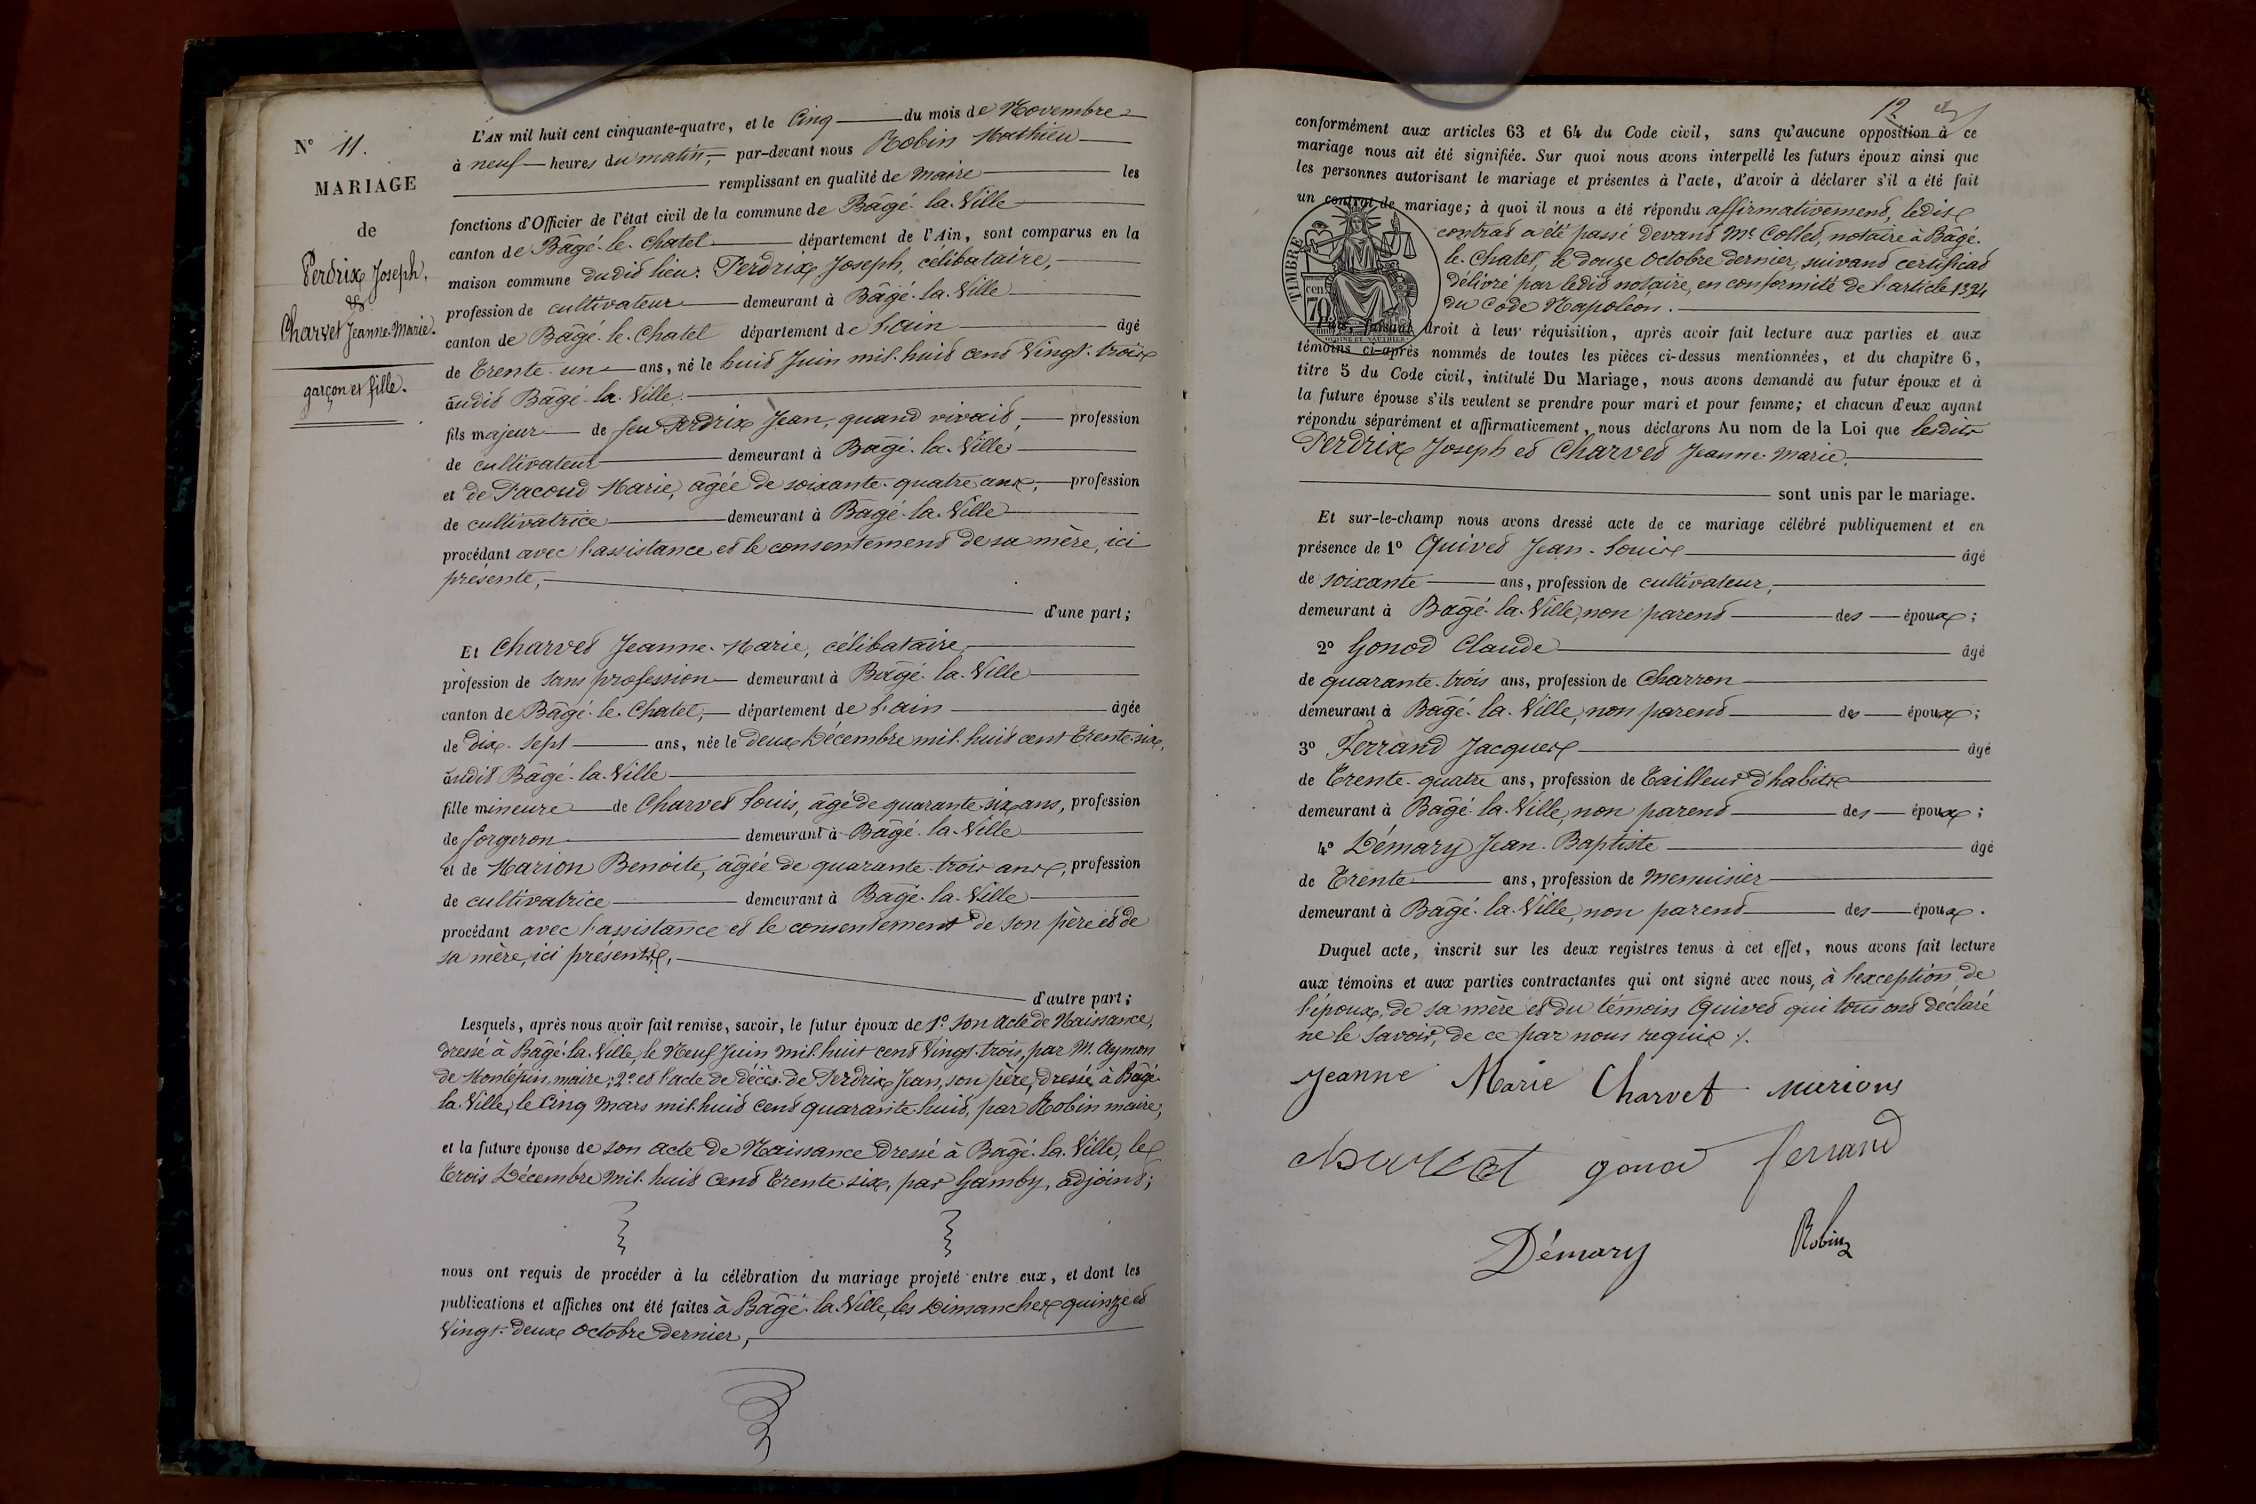 N° 11.
MARIAGE
de
Perdrix Joseph,
&
Charvet Jeanne-Marie.
garçon et fille.
L'AN mil huit cent cinquante-quatre, et le Cinq du mois de Novembre
à neuf heures du matin, par-devant nous Robin Mathieu
remplissant en qualité de maire les
fonctions d'Officier de l'état civil de la commune de Bâgé-la-Ville
canton de Bâgé-le-Chatel département de l'Ain, sont comparus en la
maison commune dudit lieu: Perdrix Joseph, célibataire,
profession de cultivateur demeurant à Bâgé-la-Ville
canton de Bâgé-le-Chatel département de l'ain âgé
de Trente-un ans, né le huit Juin mil-huit cent Vingt-trois
audit Bâgé-la-Ville
fils majeur de feu Perdrix Jean, quand vivait, profession
de cultivateur demeurant à Bâgé-la-Ville
et de Pacoud Marie, âgée de soixante-quatre ans, profession
de cultivatrice demeurant à Bâgé-la-Ville
procédant avec l'assistance et le consentement de sa mère, ici
présente,
d'une part;
Et Charvet Jeanne-Marie, célibataire,
profession de sans profession demeurant à Bâgé-la-Ville
canton de Bâgé-le-Chatel, département de l'ain âgée
de dix-sept ans, née le deux Décembre mil-huit cent Trente-six,
audit Bâgé-la-Ville
fille mineure de Charvet Louis, âgé de quarante-six ans, profession
de forgeron demeurant à Bâgé-la-Ville
et de Marion Benoite, âgée de quarante-trois ans, profession
de cultivatrice demeurant à Bâgé-la-Ville
procédant avec l'assistance et le consentement de son père et de
sa mère, ici présents,
d'autre part;
Lesquels, après nous avoir fait remise, savoir, le futur époux de 1° son acte de Naissance,
dressé à Bâgé-la-Ville, le Neuf Juin mil-huit cent Vingt-trois, par M. Aymon
de Montépin, maire; 2° et l'acte de décès de Perdrix Jean, son père, dressé à Bâgé-
la-Ville, le Cinq Mars mil-huit cent quarante-huit, par Robin maire,
et la future épouse de son acte de Naissance dressé à Bâgé-la-Ville, le
Trois Décembre mil-huit cent Trente-six, par Gamby, adjoint;
nous ont requis de procéder à la célébration du mariage projeté entre eux, et dont les
publications et affiches ont été faites à Bâgé-la-Ville, les Dimanches quinze et
Vingt-deux Octobre dernier,
12
conformément aux articles 63 et 64 du Code civil, sans qu'aucune opposition à ce
mariage nous ait été signifiée. Sur quoi nous avons interpellé les futurs époux ainsi que
les personnes autorisant le mariage et présentes à l'acte, d'avoir à déclarer s'il a été fait
un contrat de mariage; à quoi il nous a été répondu affirmativement, ledit
contrat a été passé devant Me Collet, notaire à Bâgé-
le-Chatel, le douze Octobre dernier, suivant certificat
délivré par ledit notaire, en conformité de l'article 1394
du Code Napoléon.
TIMBRE
70 cen.
Puis, faisant droit à leur réquisition, après avoir fait lecture aux parties et aux
témoins ci-après nommés de toutes les pièces ci-dessus mentionnées, et du chapitre 6,
titre 5 du Code civil, intitulé Du Mariage, nous avons demandé au futur époux et à
la future épouse s'ils veulent se prendre pour mari et pour femme; et chacun d'eux ayant
répondu séparément et affirmativement, nous déclarons Au nom de la Loi que lesdits
Perdrix Joseph et Charvet Jeanne-Marie.
sont unis par le mariage.
Et sur-le-champ nous avons dressé acte de ce mariage célébré publiquement et en
présence de 1° Quivet Jean-Louis âgé
de soixante ans, profession de cultivateur,
demeurant à Bâgé-la-Ville, non parent des époux;
2° Gonod Claude âgé
de quarante-trois ans, profession de Charron
demeurant à Bâgé-la-Ville, non parent des époux;
3° Ferrand Jacques âgé
de Trente-quatre ans, profession de Tailleur d'habits
demeurant à Bâgé-la-Ville, non parent des époux;
4° Démary Jean-Baptiste âgé
de Trente ans, profession de menuisier
demeurant à Bâgé-la-Ville, non parent des époux.
Duquel acte, inscrit sur les deux registres tenus à cet effet, nous avons fait lecture
aux témoins et aux parties contractantes qui ont signé avec nous, à l'exception de
l'époux, de sa mère et du témoin Quivet qui tous ont déclaré
ne le savoir, de ce par nous requis ./.
Jeanne Marie Charvet
gonod ferrand
Démary Robin